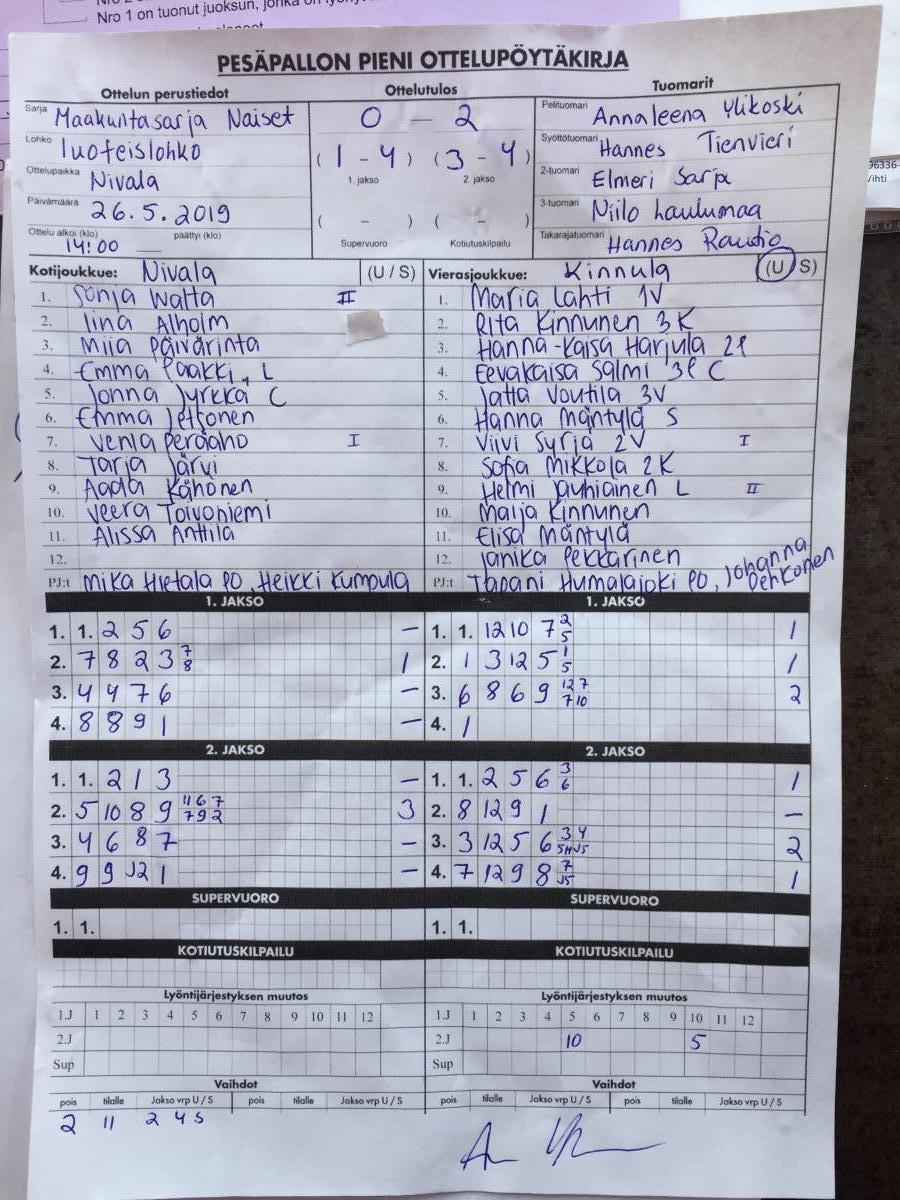 Nro 1 on tuonut juoksun, jonka on
PESÄPALLON PIENI OTTELUPÖYTÄKIRJA
Ottelun perustiedot Ottelutulos Tuomarit
Sarja Maakuntasarja Naiset 0 - 2 Pelituomari Annaleena Ylikoski
Lohko luoteislohko (1 - 4) (3 - 4) Syöttötuomari Hannes Tienvieri
1. jakso 2. jakso
Ottelupaikka Nivala 2-tuomari Elmeri Sarja
Päivämäärä 26.5.2019 ( - ) ( - ) 3-tuomari Niilo Laulumaa
Ottelu alkoi (klo) 14:00 päättyi (klo) Supervuoro Kotiutuskilpailu Takarajatuomari Hannes Raudio
Kotijoukkue: Nivala (U / S) Vierasjoukkue: Kinnula (U / S)
1. Sonja Waltta II 1. Maria Lahti 1V
2. Iina Alholm 2. Rita Kinnunen 3K
3. Miia Päivärinta 3. Hanna-Kaisa Harjula 2P
4. Emma Paakki, L 4. Eevakaisa Salmi 3P C
5. Jonna Jyrkkä C 5. Jatta Voutila 3V
6. Emma Jettonen 6. Hanna Mäntylä S
7. Venla Peräaho I 7. Viivi Syrjä 2V I
8. Tarja Järvi 8. Sofia Mikkola 2K
9. Aada Kähönen 9. Helmi Jauhiainen L II
10. Veera Toivoniemi 10. Maija Kinnunen
11. Alissa Anttila 11. Elisa Mäntylä
12. 12. Janika Pekkarinen
PJ:t Mika Hietala PO, Heikki Kumpula PJ:t Tapani Humalajoki PO, Johanna Pehkonen
1. JAKSO 1. JAKSO
1. 1. 2 5 6 - 1. 1. 12 10 7 2 5 1
2. 7 8 2 3 7 8 1 2. 1 3 12 5 1 5 1
3. 4 4 7 6 - 3. 6 8 6 9 12 7 7 10 2
4. 8 8 9 1 - 4. 1
2. JAKSO 2. JAKSO
1. 1. 2 1 3 - 1. 1. 2 5 6 3 6 1
2. 5 10 8 9 11 6 7 7 9 2 3 2. 8 12 9 1 -
3. 4 6 8 7 - 3. 3 12 5 6 3 4 2
4. 9 9 J2 1 - 4. 7 12 9 8 7 J5 1
SUPERVUORO SUPERVUORO
1. 1. 1. 1.
KOTIUTUSKILPAILU KOTIUTUSKILPAILU
Lyöntijärjestyksen muutos Lyöntijärjestyksen muutos
1.J 1 2 3 4 5 6 7 8 9 10 11 12 1.J 1 2 3 4 5 6 7 8 9 10 11 12
2.J 2.J 10 5
Sup Sup
Vaihdot Vaihdot
pois tilalle Jakso vrp U / S pois tilalle Jakso vrp U / S pois tilalle Jakso vrp U / S pois tilalle Jakso vrp U / S
2 11 2 4 S